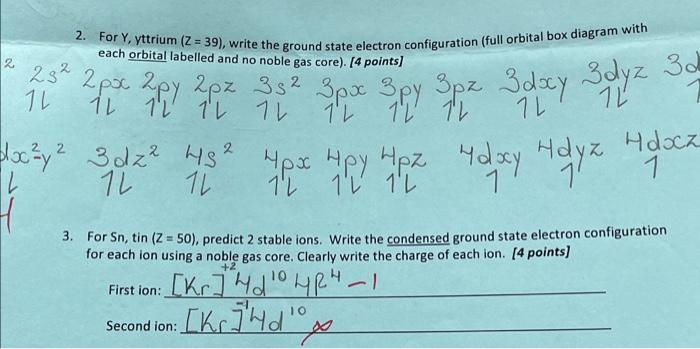 2. For Y, yttrium (Z = 39), write the ground state electron configuration (full orbital box diagram with
each orbital labelled and no noble gas core). [4 points]
2 2s² 2px 2py 2pz 3s² 3px 3py 3pz 3dxy 3dyz 3d
1L 1L 1L 1L 1L 1L 1L 1L 1L 1L 1
dx²-y² 3dz² 4s² 4px 4py 4pz 4dxy 4dyz 4dxz
L 1L 1L 1L 1L 1L 1 1 1
3. For Sn, tin (Z = 50), predict 2 stable ions. Write the condensed ground state electron configuration
for each ion using a noble gas core. Clearly write the charge of each ion. [4 points]
First ion: [Kr]⁺² 4d¹⁰ 4p⁴ -1
Second ion: [Kr]⁻¹ 4d¹⁰